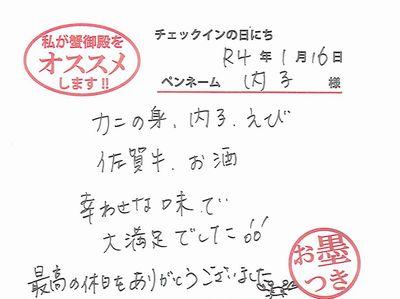 私が蟹御殿を
オススメ
します!!
チェックインの日にち
R4年1月16日
ペンネーム 内子 様
カニの身、内子、えび
佐賀牛、お酒
幸わせな味で
大満足でした!!
最高の休日をありがとうございました
お墨
つき